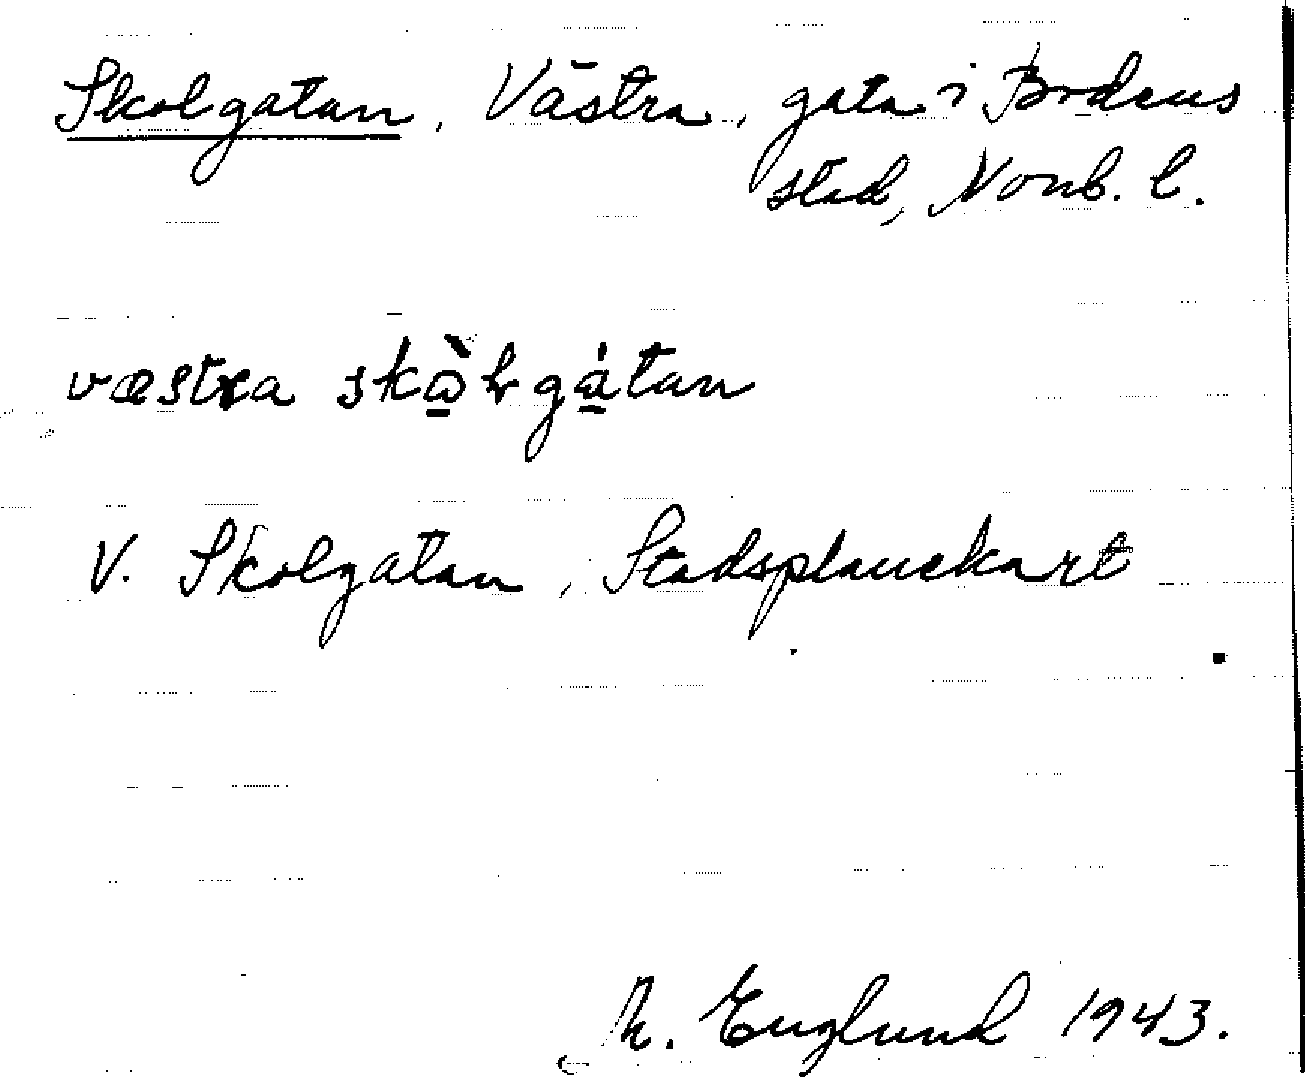 Skolgatan, Västra, gata i Bodens
stad, Norrb. l.
væstra skὼlgátan
V. Skolgatan, Stadsplanekart
M. Englund 1943.